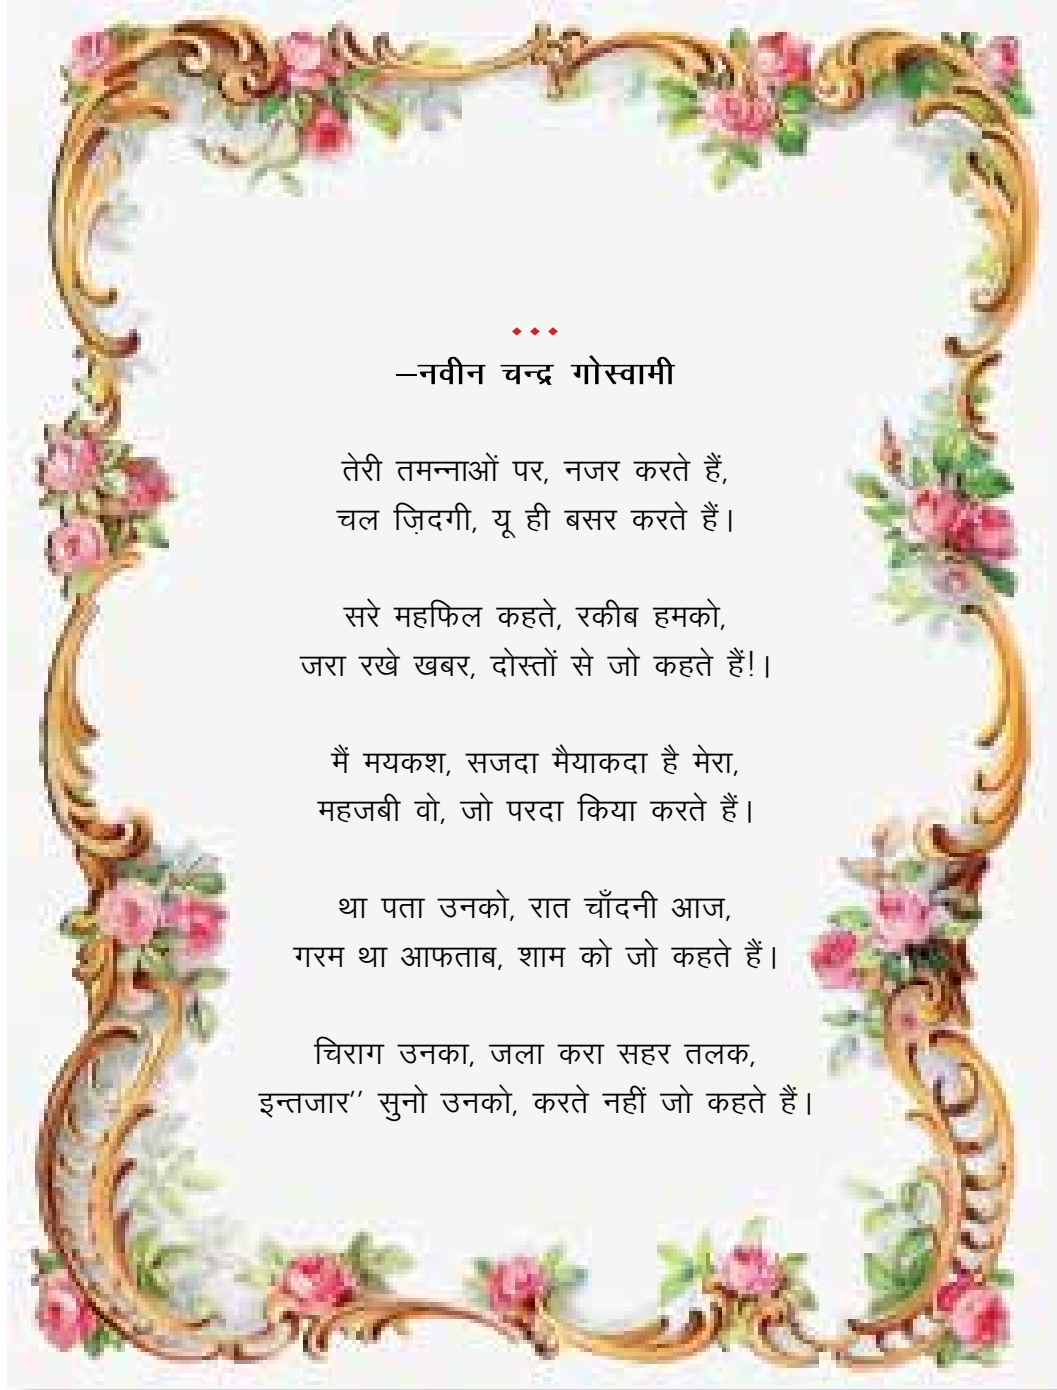 –नवीन चन्द्र गोस्वामी
तेरी तमन्नाओं पर, नजर करते हैं,
चल ज़िदगी, यू ही बसर करते हैं।
सरे महफिल कहते, रकीब हमको,
जरा रखे खबर, दोस्तों से जो कहते हैं!।
मैं मयकश, सजदा मैयाकदा है मेरा,
महजबी वो, जो परदा किया करते हैं।
था पता उनको, रात चाँदनी आज,
गरम था आफताब, शाम को जो कहते हैं।
चिराग उनका, जला करा सहर तलक,
इन्तजार’’ सुनो उनको, करते नहीं जो कहते हैं।